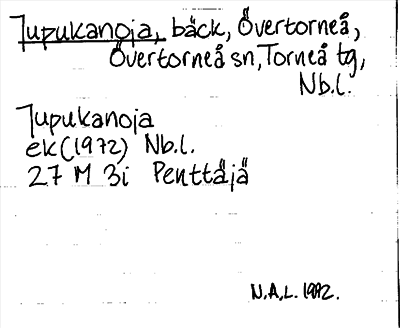 Jupukanoja, bäck, Övertorneå,
Övertorneå sn, Torneå tg,
Nb.l.
Jupukanoja
ek (1972) Nb.l.
27 M 3i Penttäjä
N.A.L. 1992.